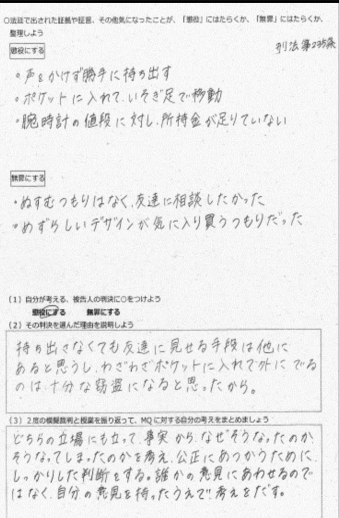 ○法廷で出された証拠や証言、その他気になったことが、「懲役」にはたらくか、「無罪」にはたらくか、
整理しよう
刑法第235条
懲役にする
・声をかけず勝手に持ち出す
・ポケットに入れて、いそぎ足で移動
・腕時計の値段に対し、所持金が足りていない
無罪にする
・ぬすむつもりはなく、友達に相談したかった
・めずらしいデザインが気に入り買うつもりだった
(1)自分が考える、被告人の判決に○をつけよう
懲役にする 無罪にする
(2)その判決を選んだ理由を説明しよう
持ち出さなくても友達に見せる手段は他に
あると思うし、わざわざポケットに入れて外にでる
のは、十分な窃盗になると思ったから。
(3)2度の模擬裁判と授業を振り返って、MQに対する自分の考えをまとめましょう
どちらの立場にも立って、事実から、なぜそうなったのか、
そうなってしまったのかを考え、公正にあつかうために、
しっかりした判断をする。誰かの意見にあわせるので
はなく、自分の意見を持ったうえで、考えをだす。